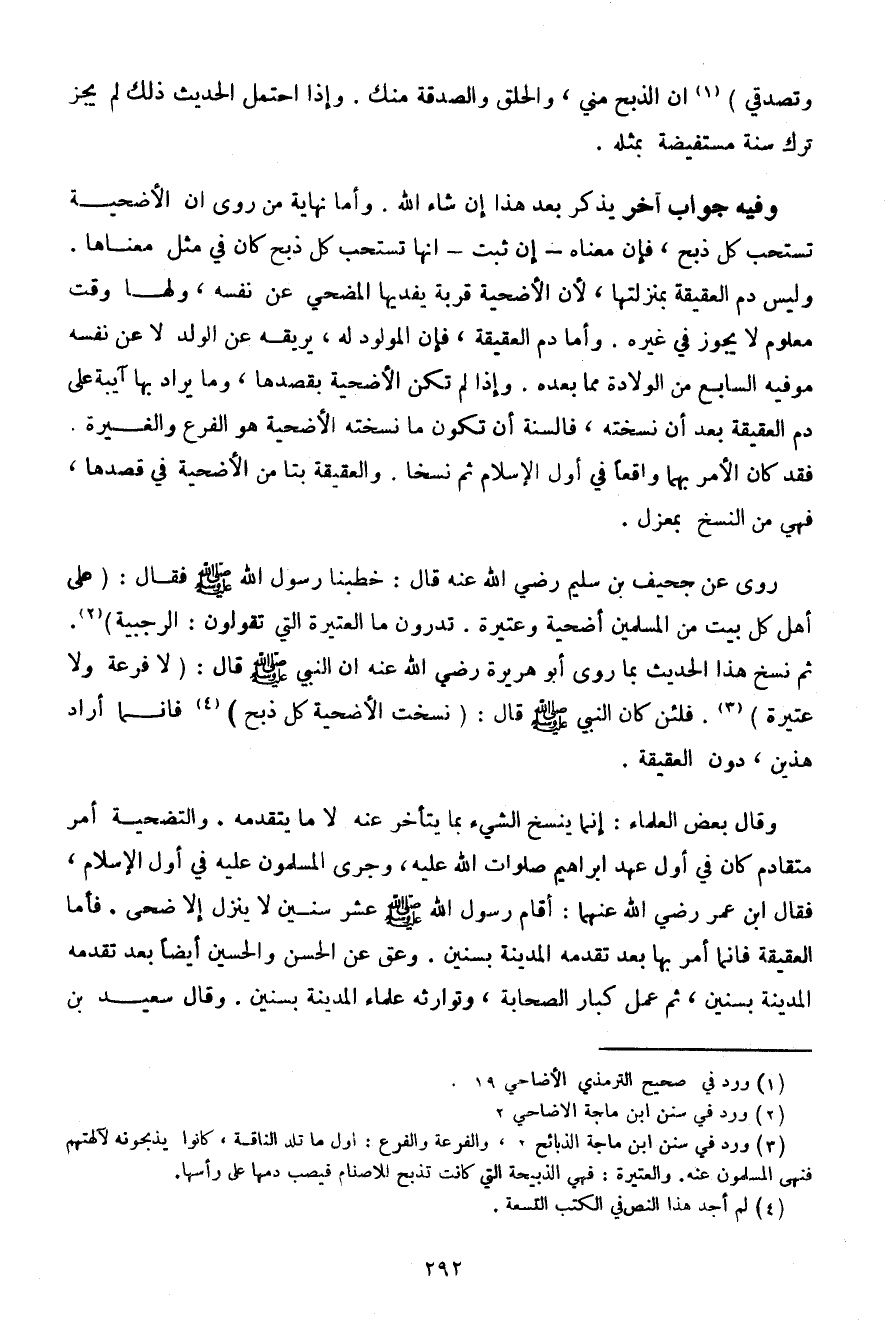 وتصدقي ) (١) ان الذبح مني ، والحلق والصدقة منك . وإذا احتمل الحديث ذلك لم يجز
ترك سنة مستفيضة بمثله .
وفيه جواب آخر يذكر بعد هذا إن شاء الله . وأما نهاية من روى ان الأضحيـــة
تستحب كل ذبح ، فإن معناه – إن ثبت – انها تستحب كل ذبح كان في مثل معنـاها .
وليس دم العقيقة بمنزلتها ، لأن الأضحية قربة يفديها المضحي عن نفسه ، ولهــا وقت
معلوم لا يجوز في غيره . وأما دم العقيقة ، فإن المولود له ، يريقـه عن الولد لا عن نفسه
موفيه السابع من الولادة مما بعده . وإذا لم تكن الأضحية بقصدها ، وما يراد بها آيبة على
دم العقيقة بعد أن نسخته ، فالسنة أن تكون ما نسخته الأضحية هو الفرع والغـــيرة .
فقد كان الأمر بهما واقعاً في أول الإسلام ثم نسخا . والعقيقة بتا من الأضحية في قصدها ،
فهي من النسخ بمعزل .
روى عن جحيف بن سليم رضي الله عنه قال : خطبنا رسول الله ﷺ فقـال : ( على
أهل كل بيت من المسلمين أضحية وعتيرة . تدرون ما العتيرة التي تقولون : الرجبية)(٢).
ثم نسخ هذا الحديث بما روى أبو هريرة رضي الله عنه ان النبي ﷺ قال : ( لا فرعة ولا
عتيرة ) (٣) . فلئن كان النبي ﷺ قال : ( نسخت الأضحية كل ذبح ) (٤) فانـــما أراد
هذين ، دون العقيقة .
وقال بعض العلماء : إنما ينسخ الشيء بما يتأخر عنه لا ما يتقدمه . والتضحيـة أمر
متقادم كان في أول عهد ابراهيم صلوات الله عليه ، وجرى المسلمون عليه في أول الإسلام ،
فقال ابن عمر رضي الله عنهما : أقام رسول الله ﷺ عشر سنـين لا ينزل إلا ضحى . فأما
العقيقة فانما أمر بها بعد تقدمه المدينة بسنين . وعق عن الحسن والحسين أيضاً بعد تقدمه
المدينة بسنين ، ثم عمل كبار الصحابة ، وتوارثه علماء المدينة بسنين . وقال سعيـــد بن
(١) ورد في صحيح الترمذي الأضاحي ١٩ .
(٢) ورد في سنن ابن ماجة الاضاحي ٢
(٣) ورد في سنن ابن ماجة الذبائح ٢ ، والفرعة والفرع : اول ما تلد الناقة ، كانوا يذبحونه لآلهتهم
فنهى المسلمون عنه. والعتيرة : فهي الذبيحة التي كانت تذبح للاصنام فيصب دمها على رأسها.
(٤) لم أجد هذا النص في الكتب التسعة .
٢٩٢